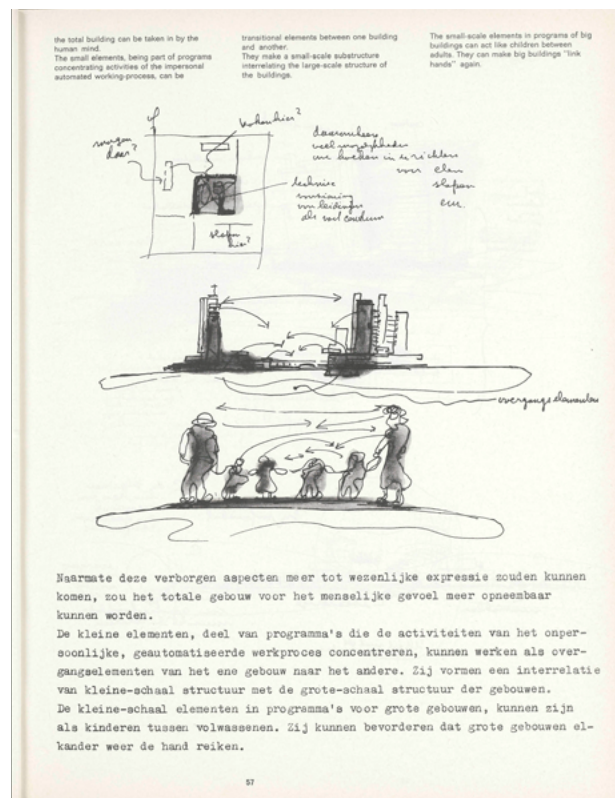 the total building can be taken in by the
human mind.
The small elements, being part of programs
concentrating activities of the impersonal
automated working-process, can be
transitional elements between one building
and another.
They make a small-scale substructure
interrelating the large-scale structure of
the buildings.
The small-scale elements in programs of big
buildings can act like children between
adults. They can make big buildings "link
hands" again.
morgen
daar?
daaromheen
veel mogelijkheden
voor eten
slapen
enz.
technise
van leidingen
slapen
hier?
overgangselementen
Naarmate deze verborgen aspecten meer tot wezenlijke expressie zouden kunnen
komen, zou het totale gebouw voor het menselijke gevoel meer opneembaar
kunnen worden.
De kleine elementen, deel van programma's die de activiteiten van het onper-
soonlijke, geautomatiseerde werkproces concentreren, kunnen werken als over-
gangselementen van het ene gebouw naar het andere. Zij vormen een interrelatie
van kleine-schaal structuur met de grote-schaal structuur der gebouwen.
De kleine-schaal elementen in programma's voor grote gebouwen, kunnen zijn
als kinderen tussen volwassenen. Zij kunnen bevorderen dat grote gebouwen el-
kander weer de hand reiken.
57